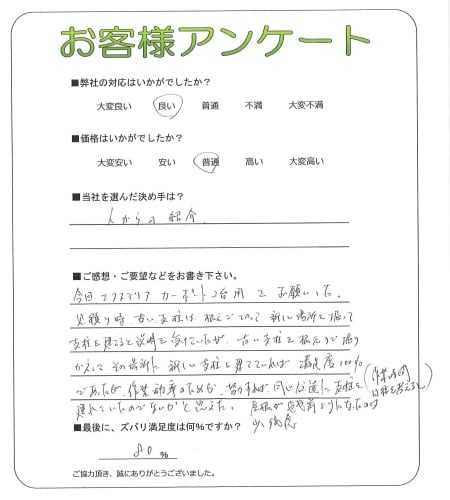 お客様アンケート
■弊社の対応はいかがでしたか？
大変良い 良い 普通 不満 大変不満
■価格はいかがでしたか？
大変安い 安い 普通 高い 大変高い
■当社を選んだ決め手は？
人からの紹介
■ご感想・ご要望などをお書き下さい。
今回エクステリア カーポート2台用をお願いした。
見積り時、古い支柱は根元で切って新しい場所を掘って
支柱を建てると説明を受けていたが、古い支柱を根元まで掘り
かえして その場所に新しい支柱を建てていれば 満足度100%
であったが、作業効率のためか、皆 同じ位置に支柱を
建れていたのでないかと思えた。
(作業時間 を考えると)
少し残念
■最後に、ズバリ満足度は何％ですか？
80 %
ご協力頂き、誠にありがとうございました。